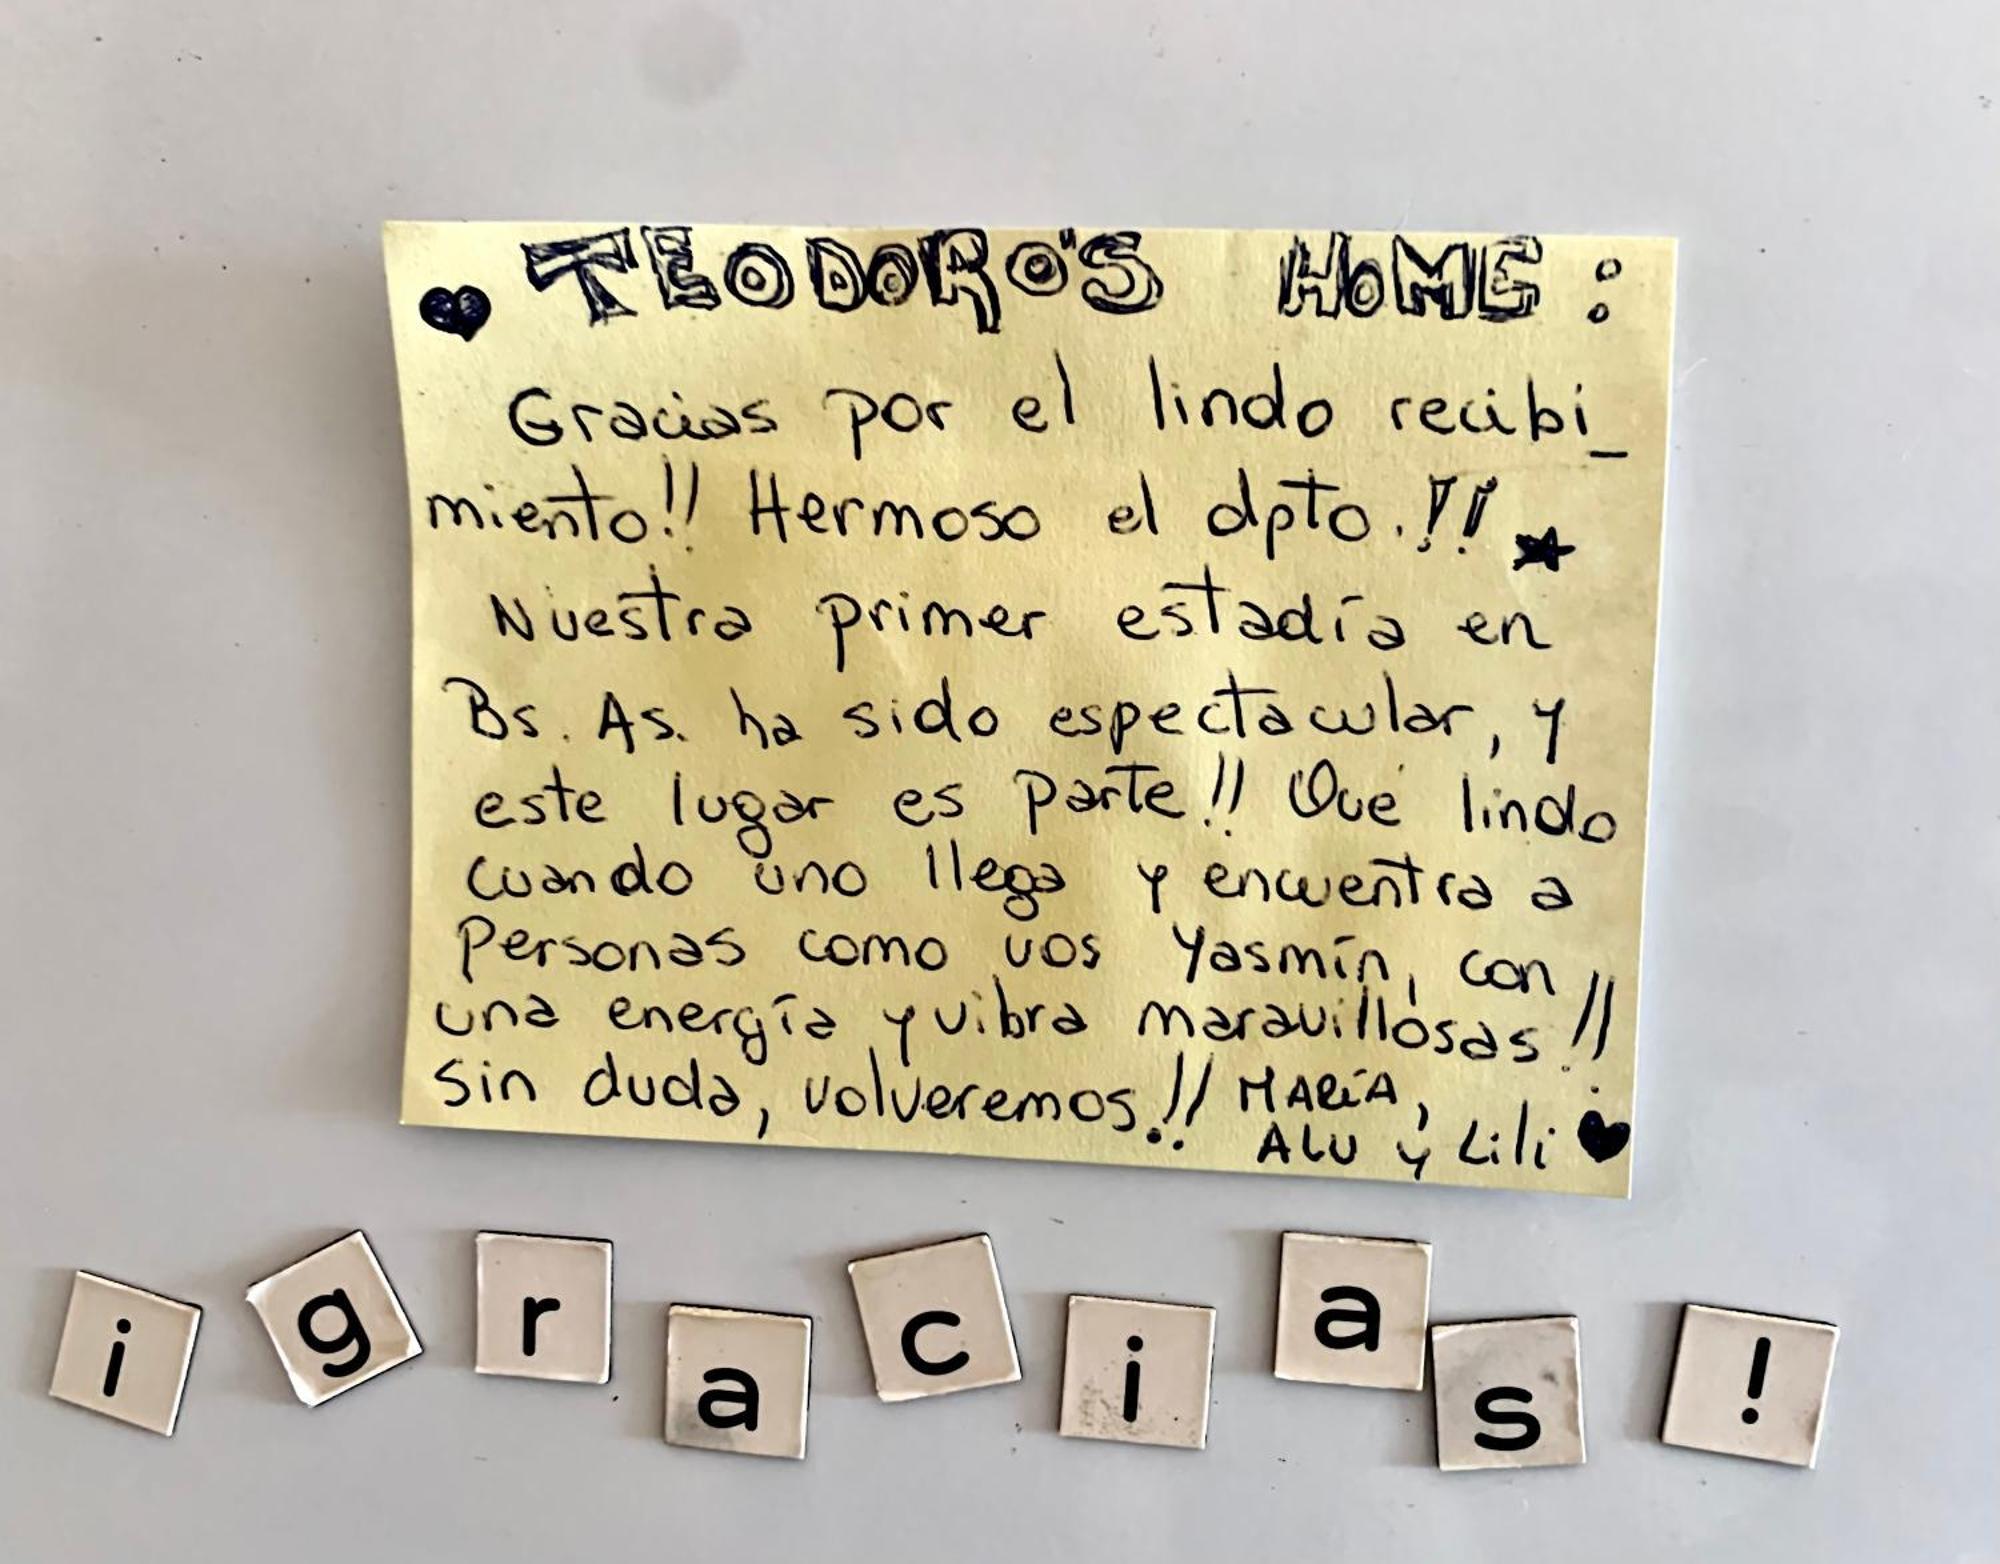 ♥ TEODORO'S HOME:
Gracias por el lindo recibi_
miento!! Hermoso el dpto.!! ★
Nuestra primer estadía en
Bs. As. ha sido espectacular, y
este lugar es parte!! Qué lindo
cuando uno llega y encuentra a
personas como vos Yasmín, con
una energía y vibra maravillosas!!
Sin duda, volveremos!! MARÍA,
ALU y Lili ♥
i g r a c i a s !